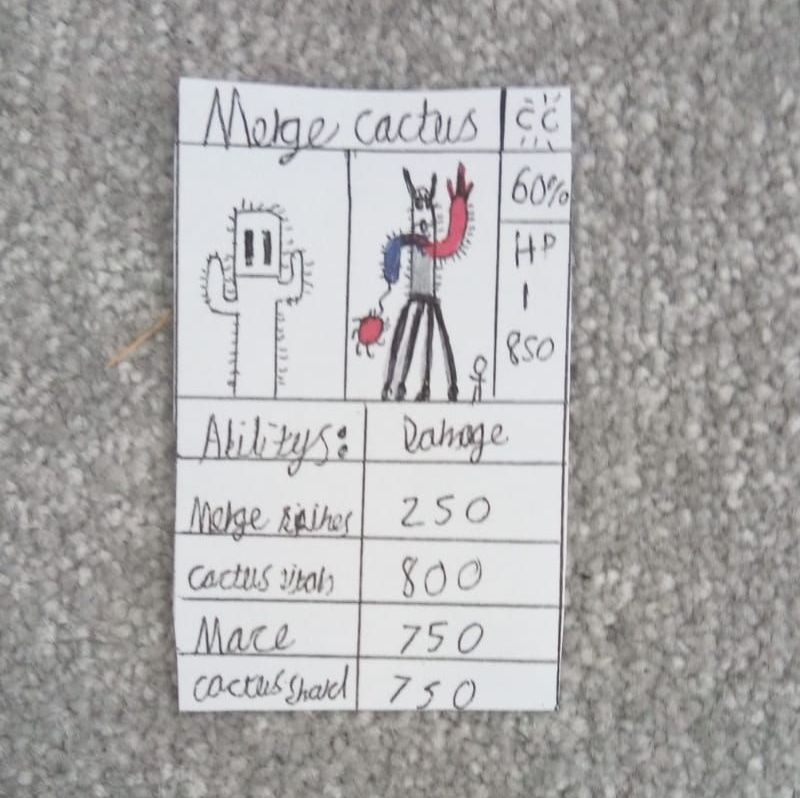 Merge cactus
CC
60%
HP
1
850
Abilitys: Damage
Merge spikes 250
cactus 800
Mace 750
cactus shard 750